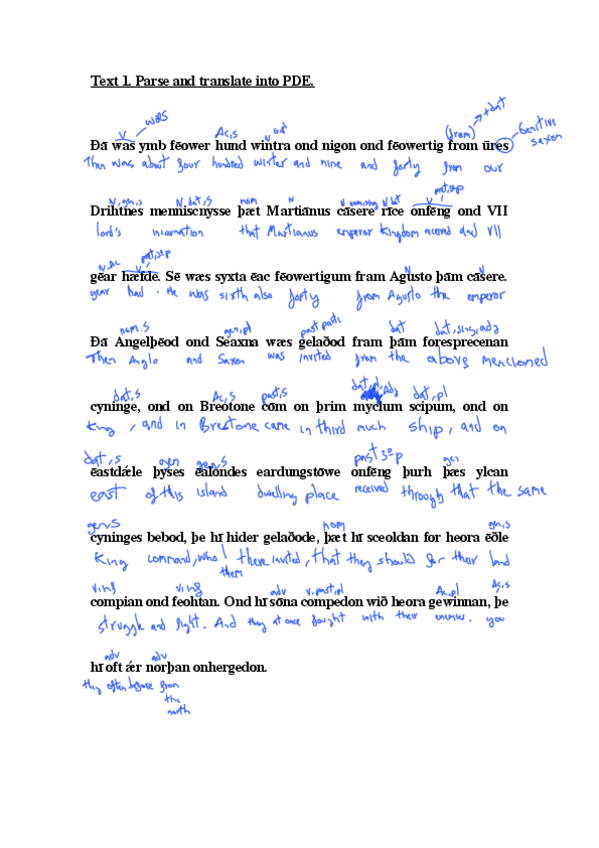 Text 1. Parse and translate into PDE.
v was Ac,s (from) +dat Genitive saxon
Ðā wæs ymb fēower hund wintra ond nigon ond fēowertig from ūres
Then was about four hundred winter and nine and forty from our
N, gn,s N, dat,s nom N N N dat past,3rd p
Drihtnes menniscnysse þæt Martiānus cāsere rīce onfēng ond VII
lord's incarnation that Martianus emperor Kingdom and VII
N, Ac past,3rd p v N N
gēar hæfde. Sē wæs syxta ēac fēowertigum fram Agusto þām cāsere.
year had. He was sixth also forty from Agusto the emperor
nom. S gen,pl past part. dat dat,sing,adj
Ðā Angelþēod ond Seaxna wæs gelaðod fram þām foresprecenan
Then Anglo and Saxon was invited from the above mencioned
dat, s Ac, s past,s dat,pl Adj dat, pl
cyninge, ond on Breotone cōm on þrim myclum scipum, ond on
King, and in Brestone came in third much ship, and on
dat, s gen gen, s past 3rd p gen
ēastdǣle þyses ēalondes eardungstōwe onfēng þurh þæs ylcan
east of this island dwelling place received through that the same
gen S nom gn,s
cyninges bebod, þe hī hider gelaðode, þæt hī sceoldan for heora ēðle
King command, who there invited, that they should for their land
them
v. ing v. ing adv v. past, pl Ac, pl Ac, s
compian ond feohtan. Ond hī sōna compedon wið heora gewinnan, þe
struggle and fight. And they at once fought with their enemies. you
adv adv
hī oft ǣr norþan onhergedon.
they often before from
the
north